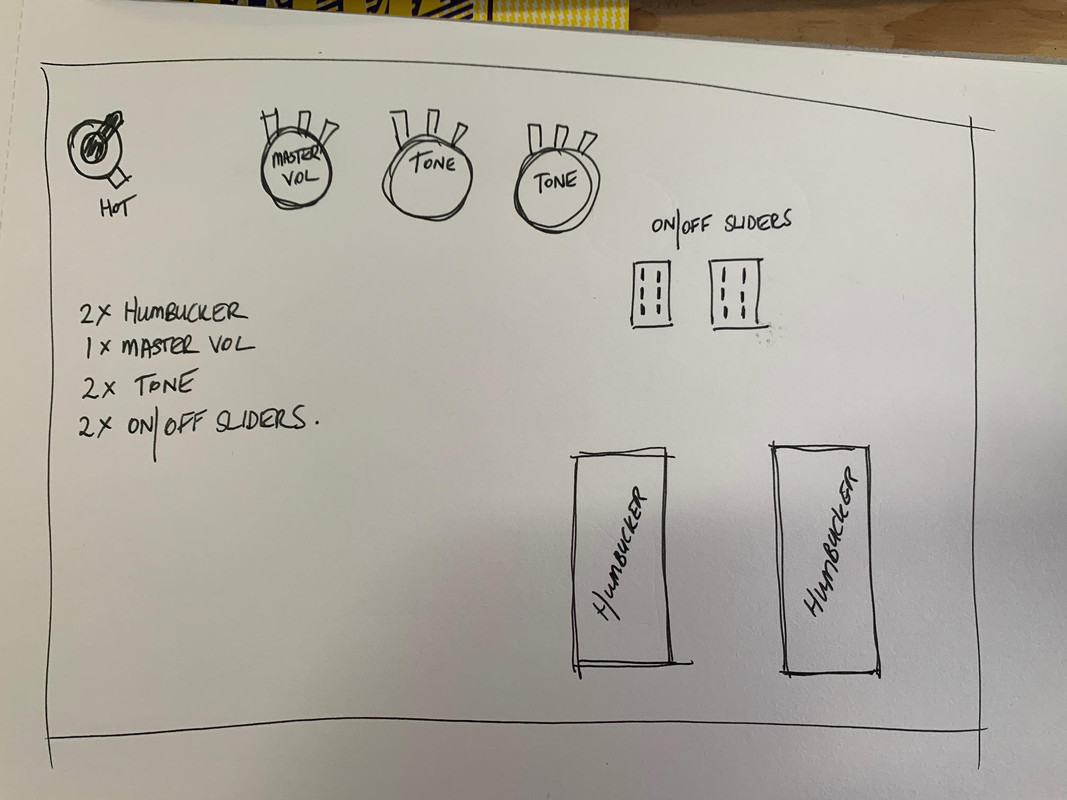 HOT
MASTER
VOL
TONE
TONE
ON/OFF SLIDERS
2X HUMBUCKER
1X MASTER VOL
2X TONE
2X ON/OFF SLIDERS.
HUMBUCKER
HUMBUCKER